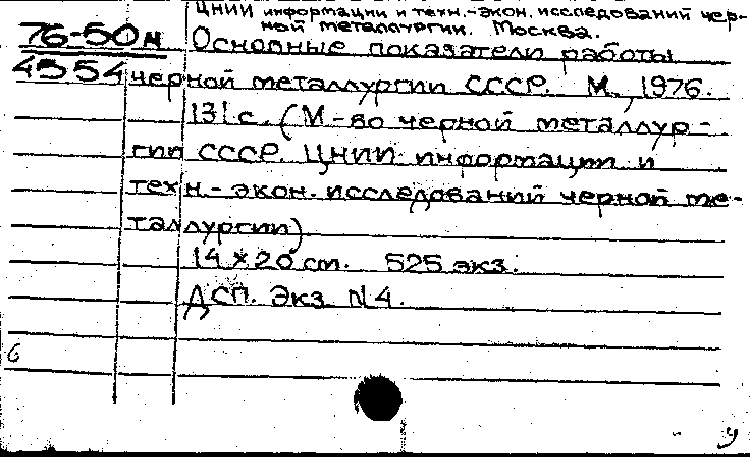 ЦНИИ информации и техн.-экон. исследований чер-
ной металлургии. Москва.
76-50м
4554
Основные показатели работы
черной металлургии СССР. М., 1976.
131 с. (М-во черной металлур-
гии СССР. ЦНИИ информации и
техн.-экон. исследований черной ме-
таллургии)
14×20 см. 525 экз.
ДСП. Экз. N4.
б
у